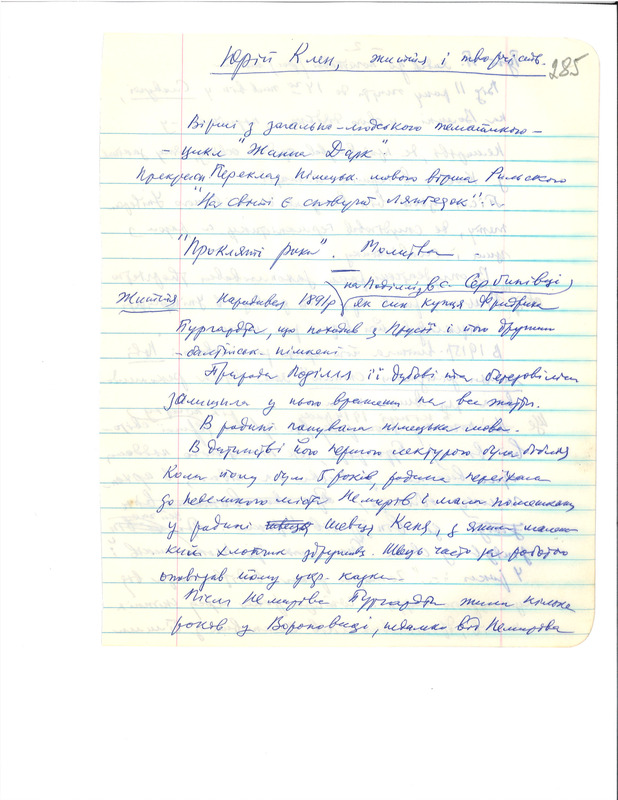 Юрій Клен, життя і творчість.
285
Вірші з загально-людського тематикою -
- цикл "Жанна Дарк"
Прекрасн Переклад німецьк. мовою вірша Рильського
"На світі є співучий Лянгедок"...
"Прокляті роки". Молитва -
на Поділлі, в с. Сербинівці,
Життя Народився 1891р як син купця Фридриха
Бургардта, що походив з Прусії і його дружини
- балтійськ. німкені.
Природа Поділля її дубові та березові ліси
залишила у нього враження на все життя.
В родині панувала німецька мова.
В дитинстві його першою лектурою була біблія
Коли йому було 5 років, родина переїхала
до невеликого міста Немирів і мали помешкання
у родині шевця Каня, з яким малень
кий хлопчик здружив. Швець часто за роботою
оповідав йому укр. казки.
Після Немирова Бургардти жили кілька
років у Вороновиці, недалеко від Немирова